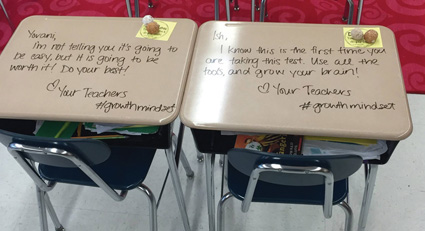 Yovani,
I'm not telling you it's going to
be easy, but it is going to be
worth it! Do your best!
♡ Your Teachers
#growthmindset
Ish,
I know this is the first time you
are taking this test. Use all the
tools, and grow your brain!
♡ Your Teachers
#growthmindset